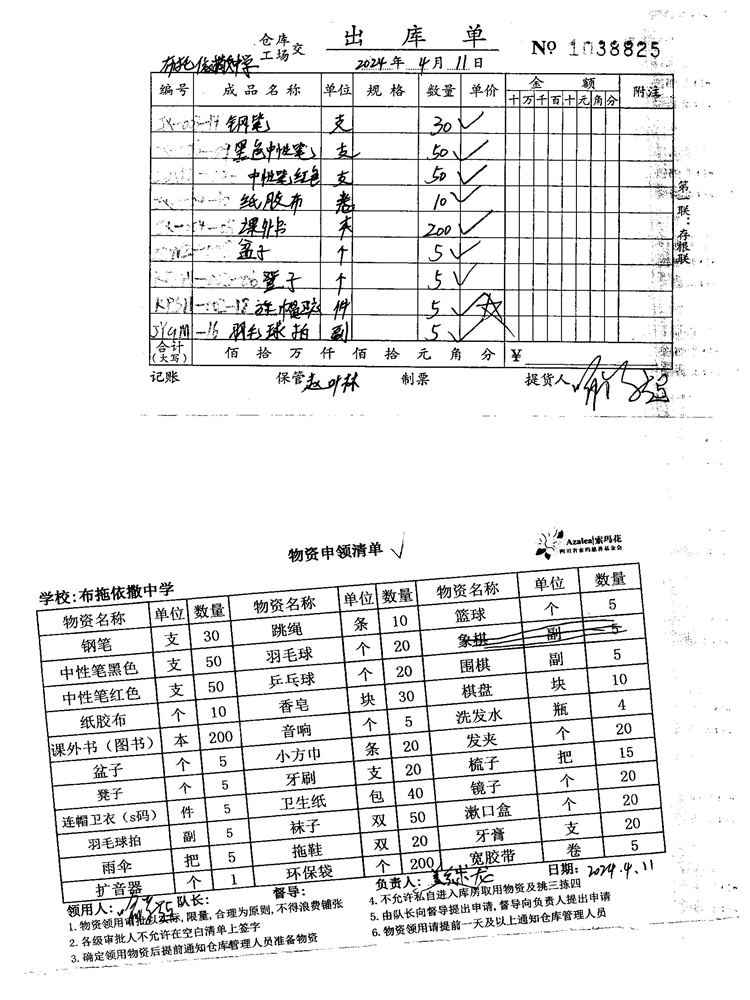 仓库
工场 交 出库单 № 1038825
布拖依撒中学 2024年4月11日
编号 成品名称 单位 规格 数量 单价 金额 附注
十 万 千 百 十 元 角 分
钢笔 支 30
黑色中性笔 支 50
中性笔红色 支 50
纸胶布 卷 10
课外书 本 200
盆子 个 5
凳子 个 5
件 5
JYGM-16 羽毛球拍 副 5
合计(大写) 佰 拾 万 仟 佰 拾 元 角 分 ¥
记账 保管 制票 提货人
第一联:存根联
物资申领清单
Azalea|索玛花
四川省索玛慈善基金会
学校:布拖依撒中学
物资名称 单位 数量 物资名称 单位 数量 物资名称 单位 数量
钢笔 支 30 跳绳 条 10 篮球 个 5
中性笔黑色 支 50 羽毛球 个 20 象棋 副 5
中性笔红色 支 50 乒乓球 个 20 围棋 副 5
纸胶布 个 10 香皂 块 30 棋盘 块 10
课外书(图书) 本 200 音响 个 5 洗发水 瓶 4
盆子 个 5 小方巾 条 20 发夹 个 20
凳子 个 5 牙刷 支 20 梳子 把 15
连帽卫衣(s码) 件 5 卫生纸 包 40 镜子 个 20
羽毛球拍 副 5 袜子 双 50 漱口盒 个 20
雨伞 把 5 拖鞋 双 20 牙膏 支 20
扩音器 个 1 环保袋 个 200 宽胶带 卷 5
领用人: 队长: 督导: 负责人: 日期: 2024.4.11
1.物资领用审批以实际,限量,合理为原则,不得浪费铺张
2.各级审批人不允许在空白清单上签字
3.确定领用物资后提前通知仓库管理人员准备物资
4.不允许私自进入库房取用物资及挑三拣四
5.由队长向督导提出申请,督导向负责人提出申请
6.物资领用请提前一天及以上通知仓库管理人员